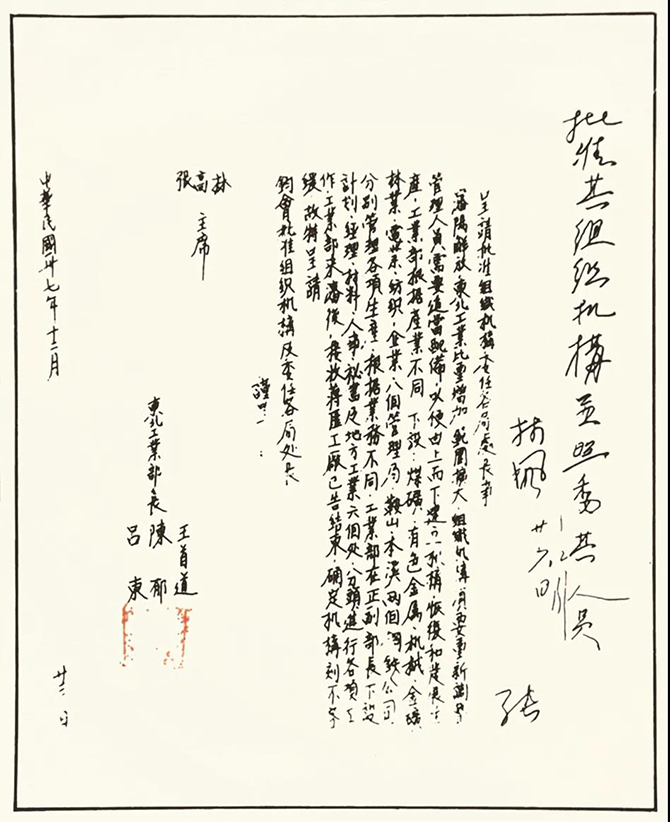 批准其組織机構並照委其人員
林楓
呈請批准組織机構委任各局處長事
瀋陽解放,東北工業比重增加,範圍擴大,組織机構,有必要重新調
管理人員需要適當配備,以便由上而下建立机構,恢復和發展生
產,工業部根据產業不同,下設:煤礦,有色金属,机械,金礦,
林業,電業,紡織,企業,八個管理局,鞍山,本溪两個鋼鉄公司,
分别管理各項生產,根据業務不同,工業部在正副部長下設
計划,經理,材料,人事,秘書及地方工業六個处,分頭進行各項工
作,工業部來瀋後,接收蔣匪工廠已告結束,確定机構刻不容
缓,故特呈請
鈞會批准組织机構及委任各局处長
謹呈
林
高 主席
張
東北工業部長
王首道
陳郁
呂東
中華民國卅七年十二月
廿二日